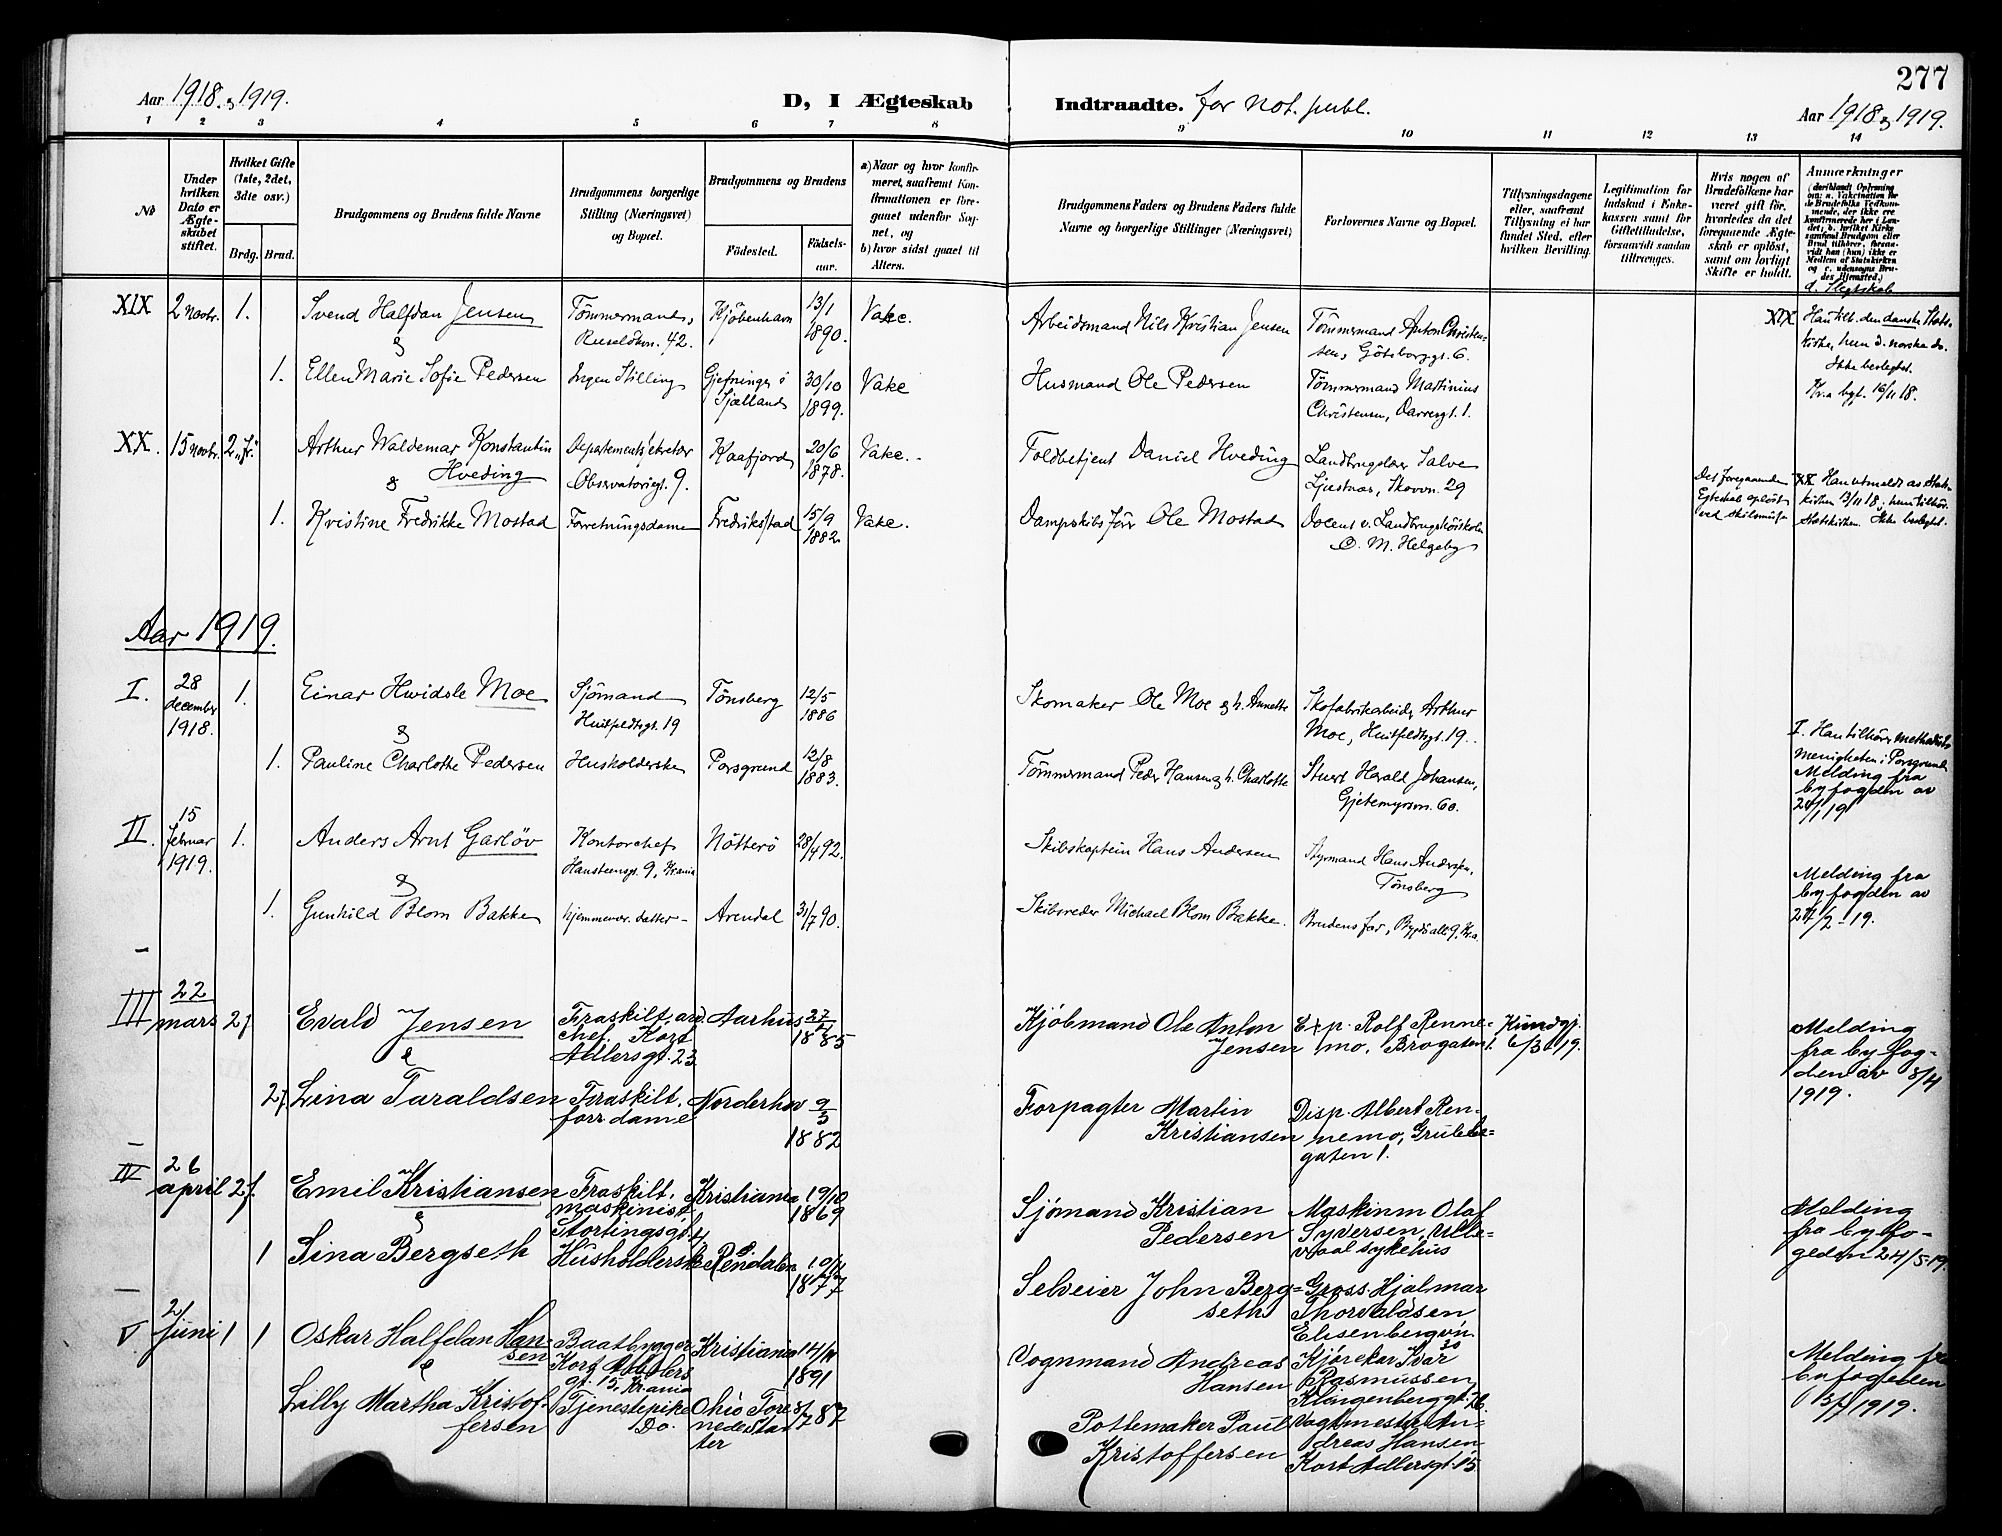 277
Aar 1918 & 1919.
D, I Ægteskab Indtraadte. for not. publ.
Aar 1918 & 1919.
1 2 3 4 5 6 7 8 9 10 11 12 13 14
No
Under hvilken Dato er Ægteskabet stiftet.
Hvilket Gifte (1ste, 2det, 3die osv.)
Brdg. Brud.
Brudgommens og Brudens fulde Navne
Brudgommens borgerlige Stilling (Næringsvei) og Bopæl.
Brudgommens og Brudens
Födested.
Födsels-aar.
a) Naar og hvor konfirmeret, saafremt Konfirmationen er foregaaet udenfor Sognet, og
b) hvor sidst gaaet til Alters.
Brudgommens Faders og Brudens Faders fulde Navne og borgerlige Stillinger (Næringsvei)
Forlovernes Navne og Bopæl.
Tillysningsdagene eller, saafremt Tillysning ei har fundet Sted, efter hvilken Bevilling.
Legitimation for Indskud i Enkekassen samt for Giftetilladelse, forsaavidt saadan tiltrænges.
Hvis nogen af Brudefolkene har været gift för, hvorledes da det foregaaende Ægteskab er oplöst, samt om lovligt Skifte er holdt.
Anmærkninger
d. Slegtskab
XIX 2 novbr. 1. Svend Halfdan Jensen Tömmermand, Kjöbenhavn 13/1 1890. Vake.
&
Ruselökvn. 42.
Arbeidsmand Nils Kristian Jensen
Tömmermand Anton Christensen, Göteborggt. 6.
XIX Han tilh. den danske Statskirke, hun d. norske do.
Ikke beslegtet.
Kr.a bygt. 16/11 18.
1. Ellen Marie Sofie Pedersen Ingen Stilling Sjælland 30/10 1899. Vake
Husmand Ole Pedersen
Tömmermand Martinius Christensen, Darresgt. 1.
XX. 15 novbr. 2, fr. Arthur Waldemar Konstantin Hveding
&
Departementssekretær Observatoriegt. 9. Kaafjord 20/6 1878. Vake.
Toldbetjent Daniel Hveding
Landbrugslærer Salve Ljestnær, Skovvn. 29
Det foregaaende Egteskab oplöst ved skilsmisse
XX Han utmeldt av Statskirken 13/11 18, hun tilhör. Statskirken. Ikke beslegtet.
1. Kristine Fredrikke Mostad Forretningsdame Fredriksstad 15/9 1882. Vake.
Dampskibsförer Ole Mostad
Docent v. Landbrugshöiskolen O. M. Helgeby
Aar 1919.
I. 28 december 1918. 1. Einar Hwidsle Moe
&
Sjömand Huitfeldtsgt. 19 Tönsberg 12/5 1886
Skomaker Ole Moe & h. Annette
Skofabrikarbeider Arthur Moe, Huitfeldtsgt. 19.
I. Han tilhörer methodist menigheten i Porsgrund
Melding fra byfogden av 24/1 19
1. Pauline Charlotte Pedersen Husholderske Porsgrund 12/8 1883.
Tömmermand Peder Hansen & h. Charlotte
Stuert Harald Johansen, Gjetemyrsvn. 60.
II. 15 februar 1919. 1. Anders Arnt Garlöv
&
Kontorchef Hansteensgt. 9, Krania Nötterö 28/4 92.
Skibskaptein Hans Andersen
Styrmand Hans Andersen, Tönsberg
Melding fra byfogden av 27/2-19.
1. Gunhild Blom Bakke hjemmevær. datter Arendal 31/7 90.
Skibsreder Michael Blom Bakke.
Brudens far, Bygdö alle 9, Kr.a.
III 22 mars 2 f. Evald Jensen
&
Fraskilt. avd. chef. Kort Adlersgt. 23. Aarhus 1885
Kjöbmand Ole Anton Jensen
Exp. Rolf Rennemo, Brogaten 1.
Kundgj. 6/3 1919.
Melding fra byfogden av 8/4 1919.
2 f. Lina Taraldsen Fraskilt. forr. dame Norderhov 9/3 1882
Forpagter Martin Kristiansen
Disp. Albert Rennemo, Grubbegaten 1.
IV 26 april 2 f. Emil Kristiansen
&
Fraskilt. maskinist. Stortingsgt. 4 Kristiania 19/10 1869
Sjömand Kristian Pedersen
Maskinm Olaf Syversen, Ullevaal sykehus
Melding fra byfogeden 24/5-19.
1 Sina Bergseth Husholderske Rendalen 10/11 1877
Selveier John Bergseth
Gross. Hjalmar Thorvaldsen Elisenbergvn. 30
V 2/ Juni 1 1 Oskar Halfdan Hansen
&
Baatbygger Kort Adelers gt. 15, Krania Kristiania 1891
Vognmand Andreas Hansen
Kjörekar Ivar Rasmussen Klingenberggt. 26.
Melding fra byfogeden 1919.
Lilly Martha Kristoffersen Tjenestepike Do. Ohio Forenede Stater 8/7 87
Pottemaker Paul Kristoffersen
Vogtmester Andreas Hansen Kort Adlersgt. 15.